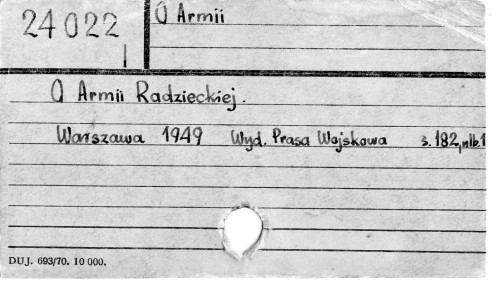 24022
I
O Armii
O Armii Radzieckiej.
Warszawa 1949 Wyd. Prasa Wojskowa s. 182, nlb. 1
DUJ. 693/70. 10 000.